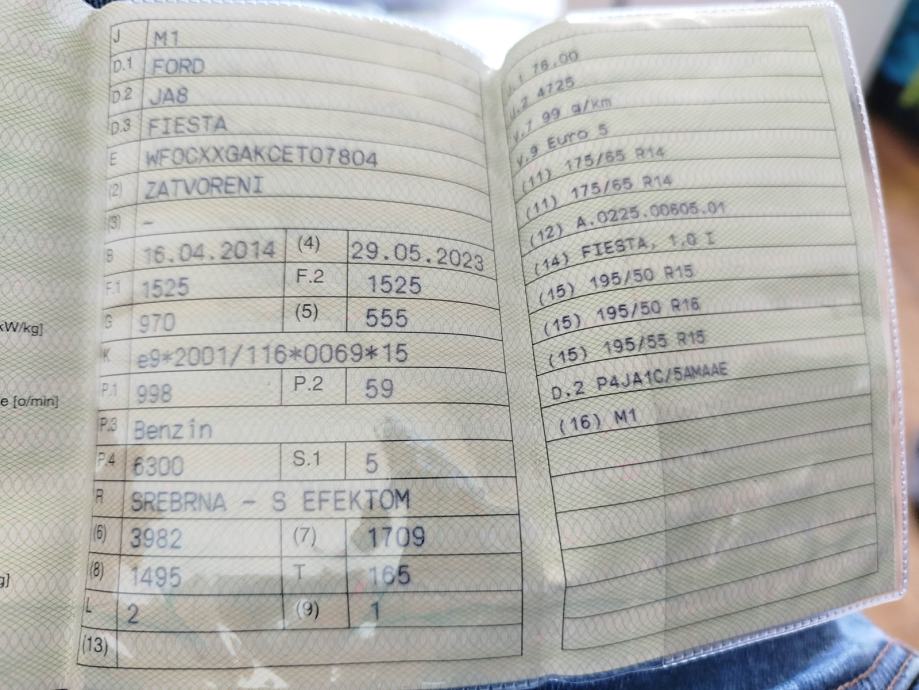 kW/kg]
e [o/min]
g]
J M1
D.1 FORD
D.2 JA8
D.3 FIESTA
E WF0CXXGAKCET07804
(2) ZATVORENI
(3) –
B 16.04.2014 (4) 29.05.2023
F.1 1525 F.2 1525
G 970 (5) 555
K e9*2001/116*0069*15
P.1 998 P.2 59
P.3 Benzin
P.4 6300 S.1 5
R SREBRNA - S EFEKTOM
(6) 3982 (7) 1709
(8) 1495 T 165
L 2 (9) 1
(13)
U.1 76.00
U.2 4725
V.7 99 g/km
V.9 Euro 5
(11) 175/65 R14
(11) 175/65 R14
(12) A.0225.00605.01
(14) FIESTA, 1.0 I
(15) 195/50 R15
(15) 195/50 R16
(15) 195/55 R15
D.2 P4JA1C/5AMAAE
(16) M1